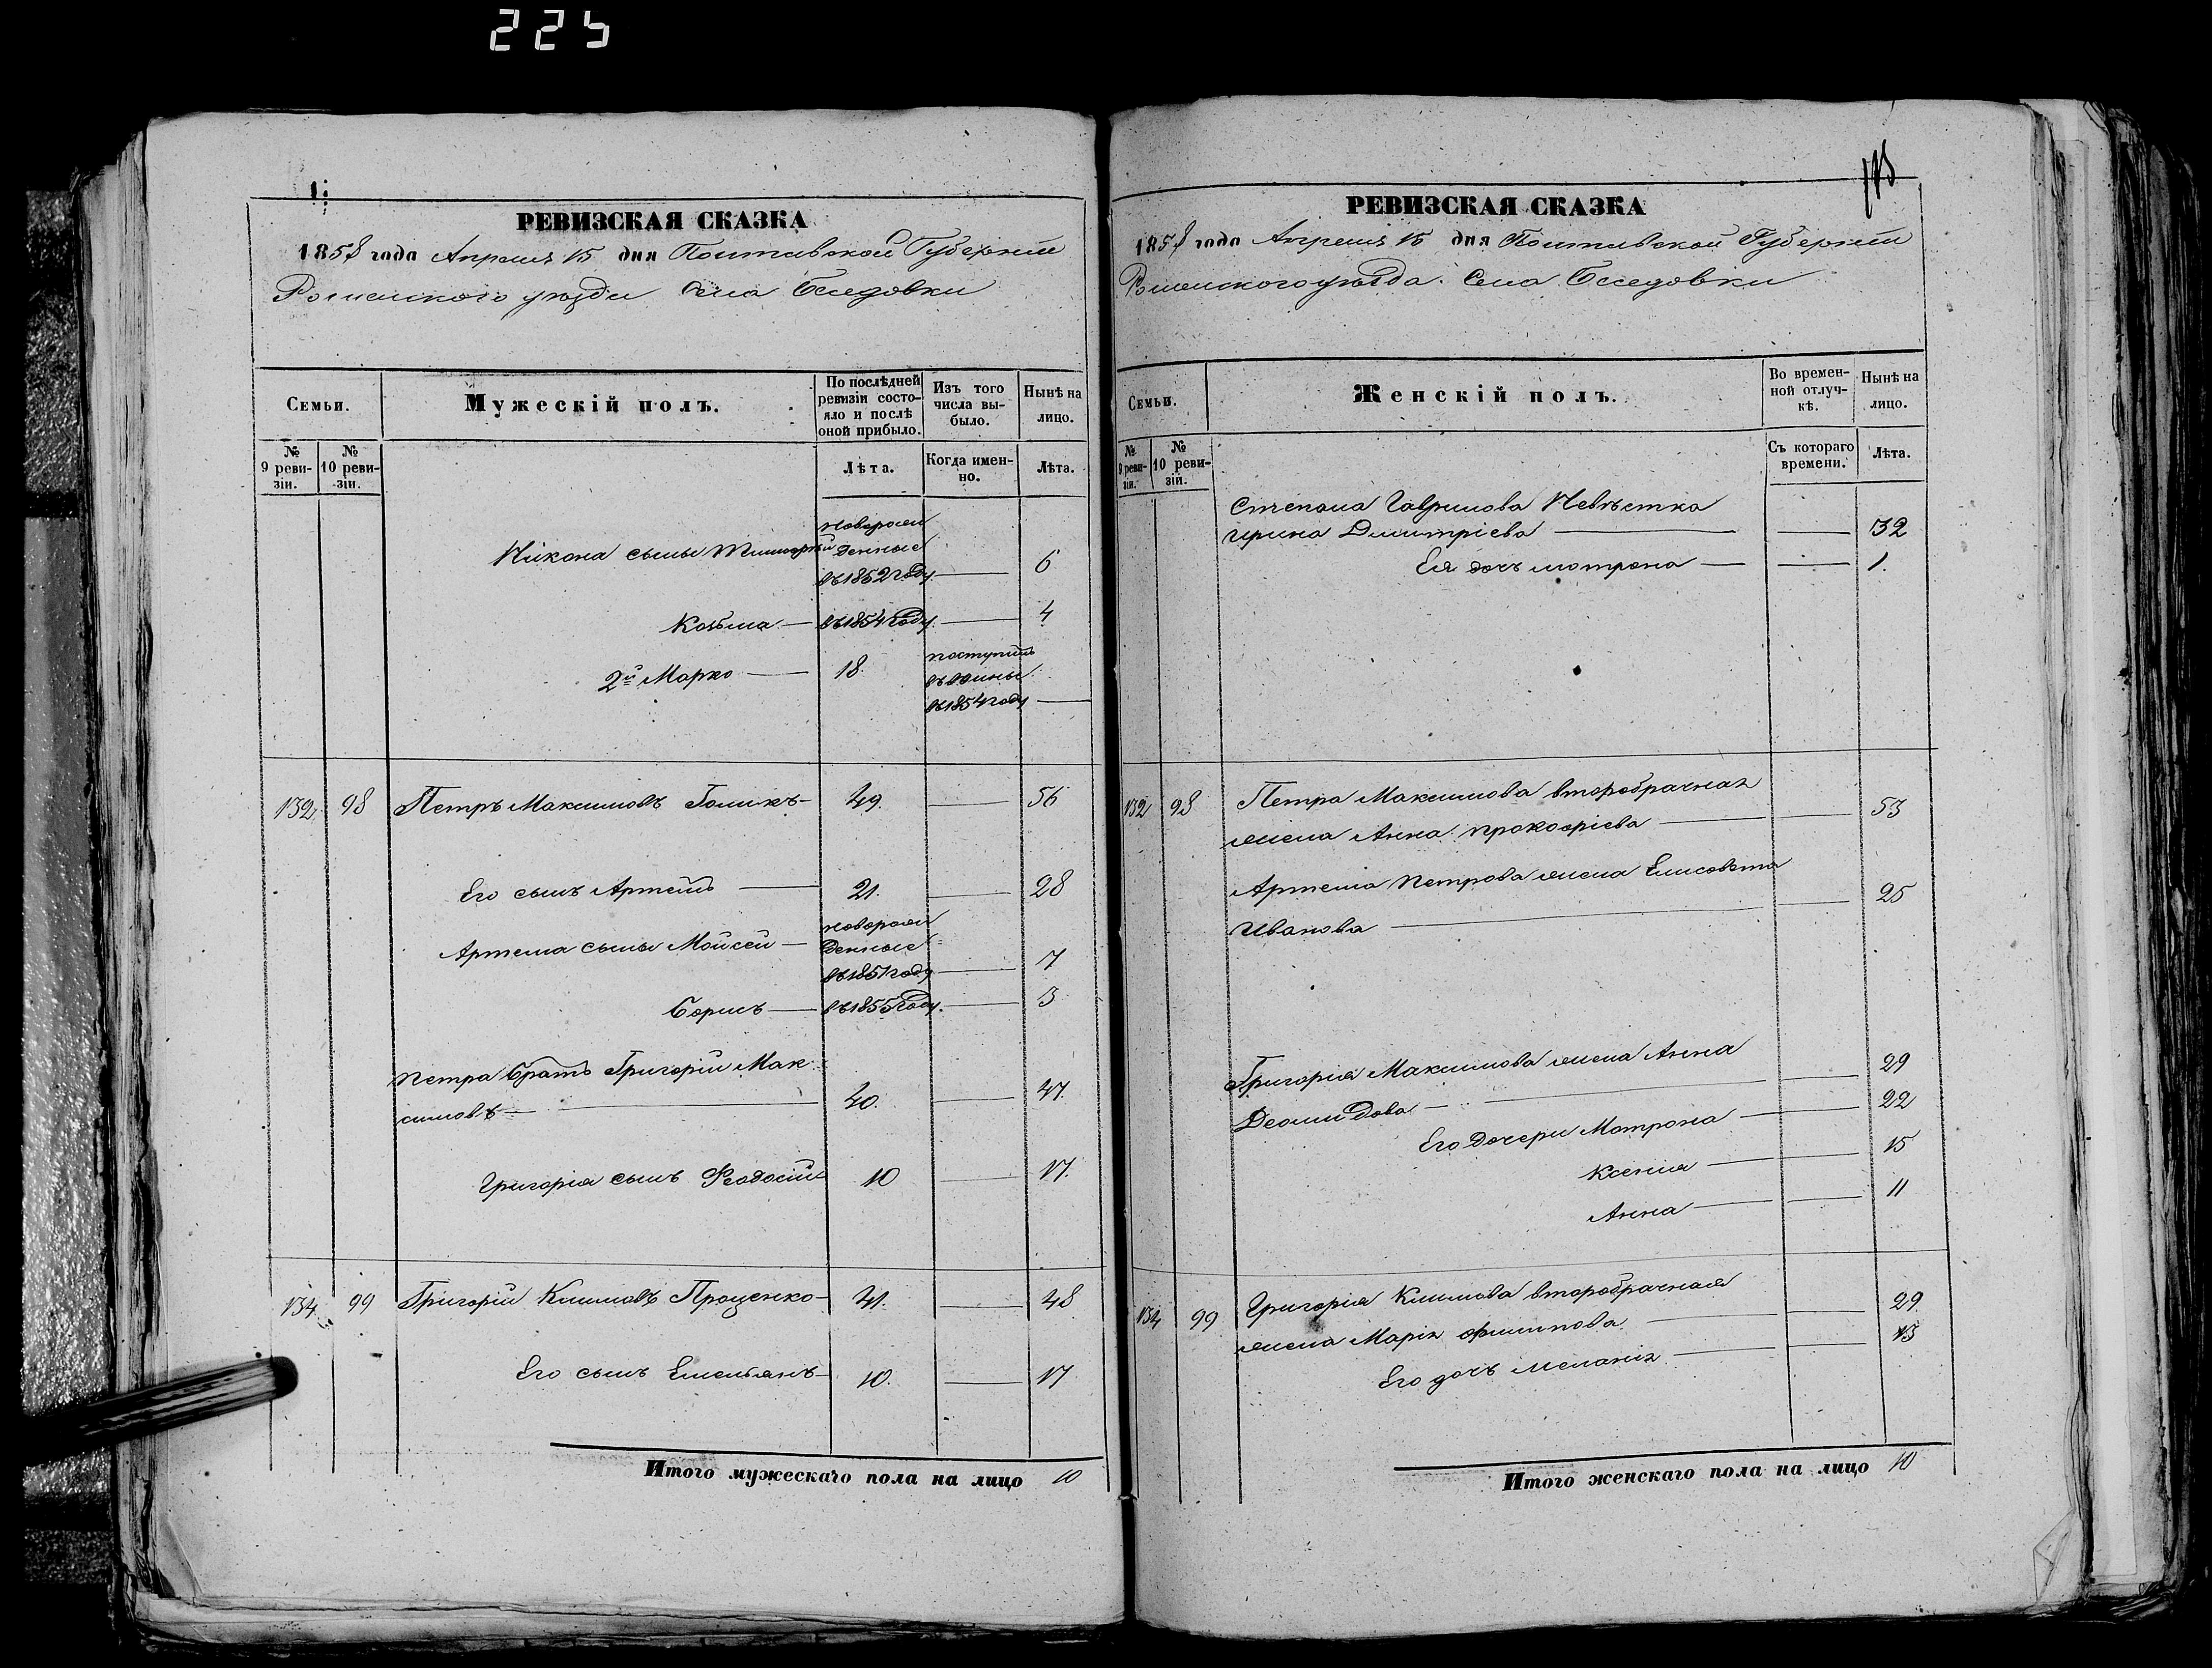 225
РЕВИЗСКАЯ СКАЗКА
1858 года Апреля 15 дня Полтавской Губернии
Роменского уезда Села Беседовки
Семьи.
Мужескій полъ.
По послѣдней ревизіи состояло и послѣ оной прибыло.
Изъ того числа выбыло.
Нынѣ на лицо.
№ 9 ревизіи.
№ 10 ревизіи.
Лѣта.
Когда именно.
Лѣта.
Никона сыны новорожденные въ 1852 году — 6
Козьма — въ 1854 году — 4
2й Марко — 18. поступилъ въ 1854 году —
132 98 Петръ Максимовъ Голикъ — 49. — 56
Его сынъ Артемъ — 21. — 28
Артема сыны Мойсей — новорожденные въ 1851 году — 7
Борисъ — въ 1855 году. — 3
Петра братъ Григорій Мак-
симовъ — 40. — 47.
Григорія сынъ Феодосій 10 — 17.
134 99 Григорій Климовъ Проценко — 41. — 48
Его сынъ Емельянъ — 10. — 17
Итого мужескаго пола на лицо 10
РЕВИЗСКАЯ СКАЗКА
1858 года Апреля 15 дня Полтавской Губернии
Роменского уезда. Села Беседовки
Семьи.
Женскій полъ.
Во временной отлучкѣ.
Нынѣ на лицо.
№ 9 ревизіи.
№ 10 ревизіи.
Съ котораго времени.
Лѣта.
Степана Гаврилова Невѣстка
Ирина Дмитріева — — 32
Ея дочь Мотрона — — 1.
132 98 Петра Максимова второбрачная
жена Анна Прокофіева — — 53
Артема Петрова жена Елисовета
Иванова — — 25
Григорія Максимова жена Анна
Деомидова — — 29
Его дочери Мотрона — — 22
Ксения — — 15
Анна — — 11
134 99 Григорія Климова второбрачная
жена Марія Филипова — — 29
Его дочь Меланія — — 13
Итого женскаго пола на лицо 10